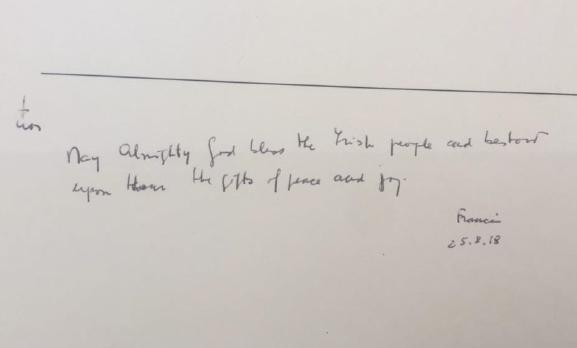 May Almighty God bless the Irish people and bestow
upon them the gifts of peace and joy.
Francis
25.8.18